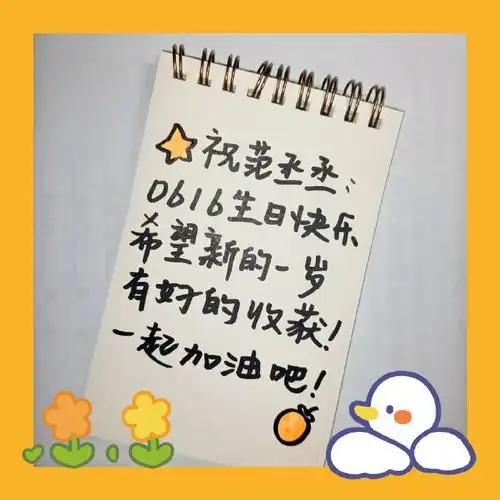 祝范丞丞:
0616生日快乐
希望新的一岁
有好的收获!
一起加油吧!